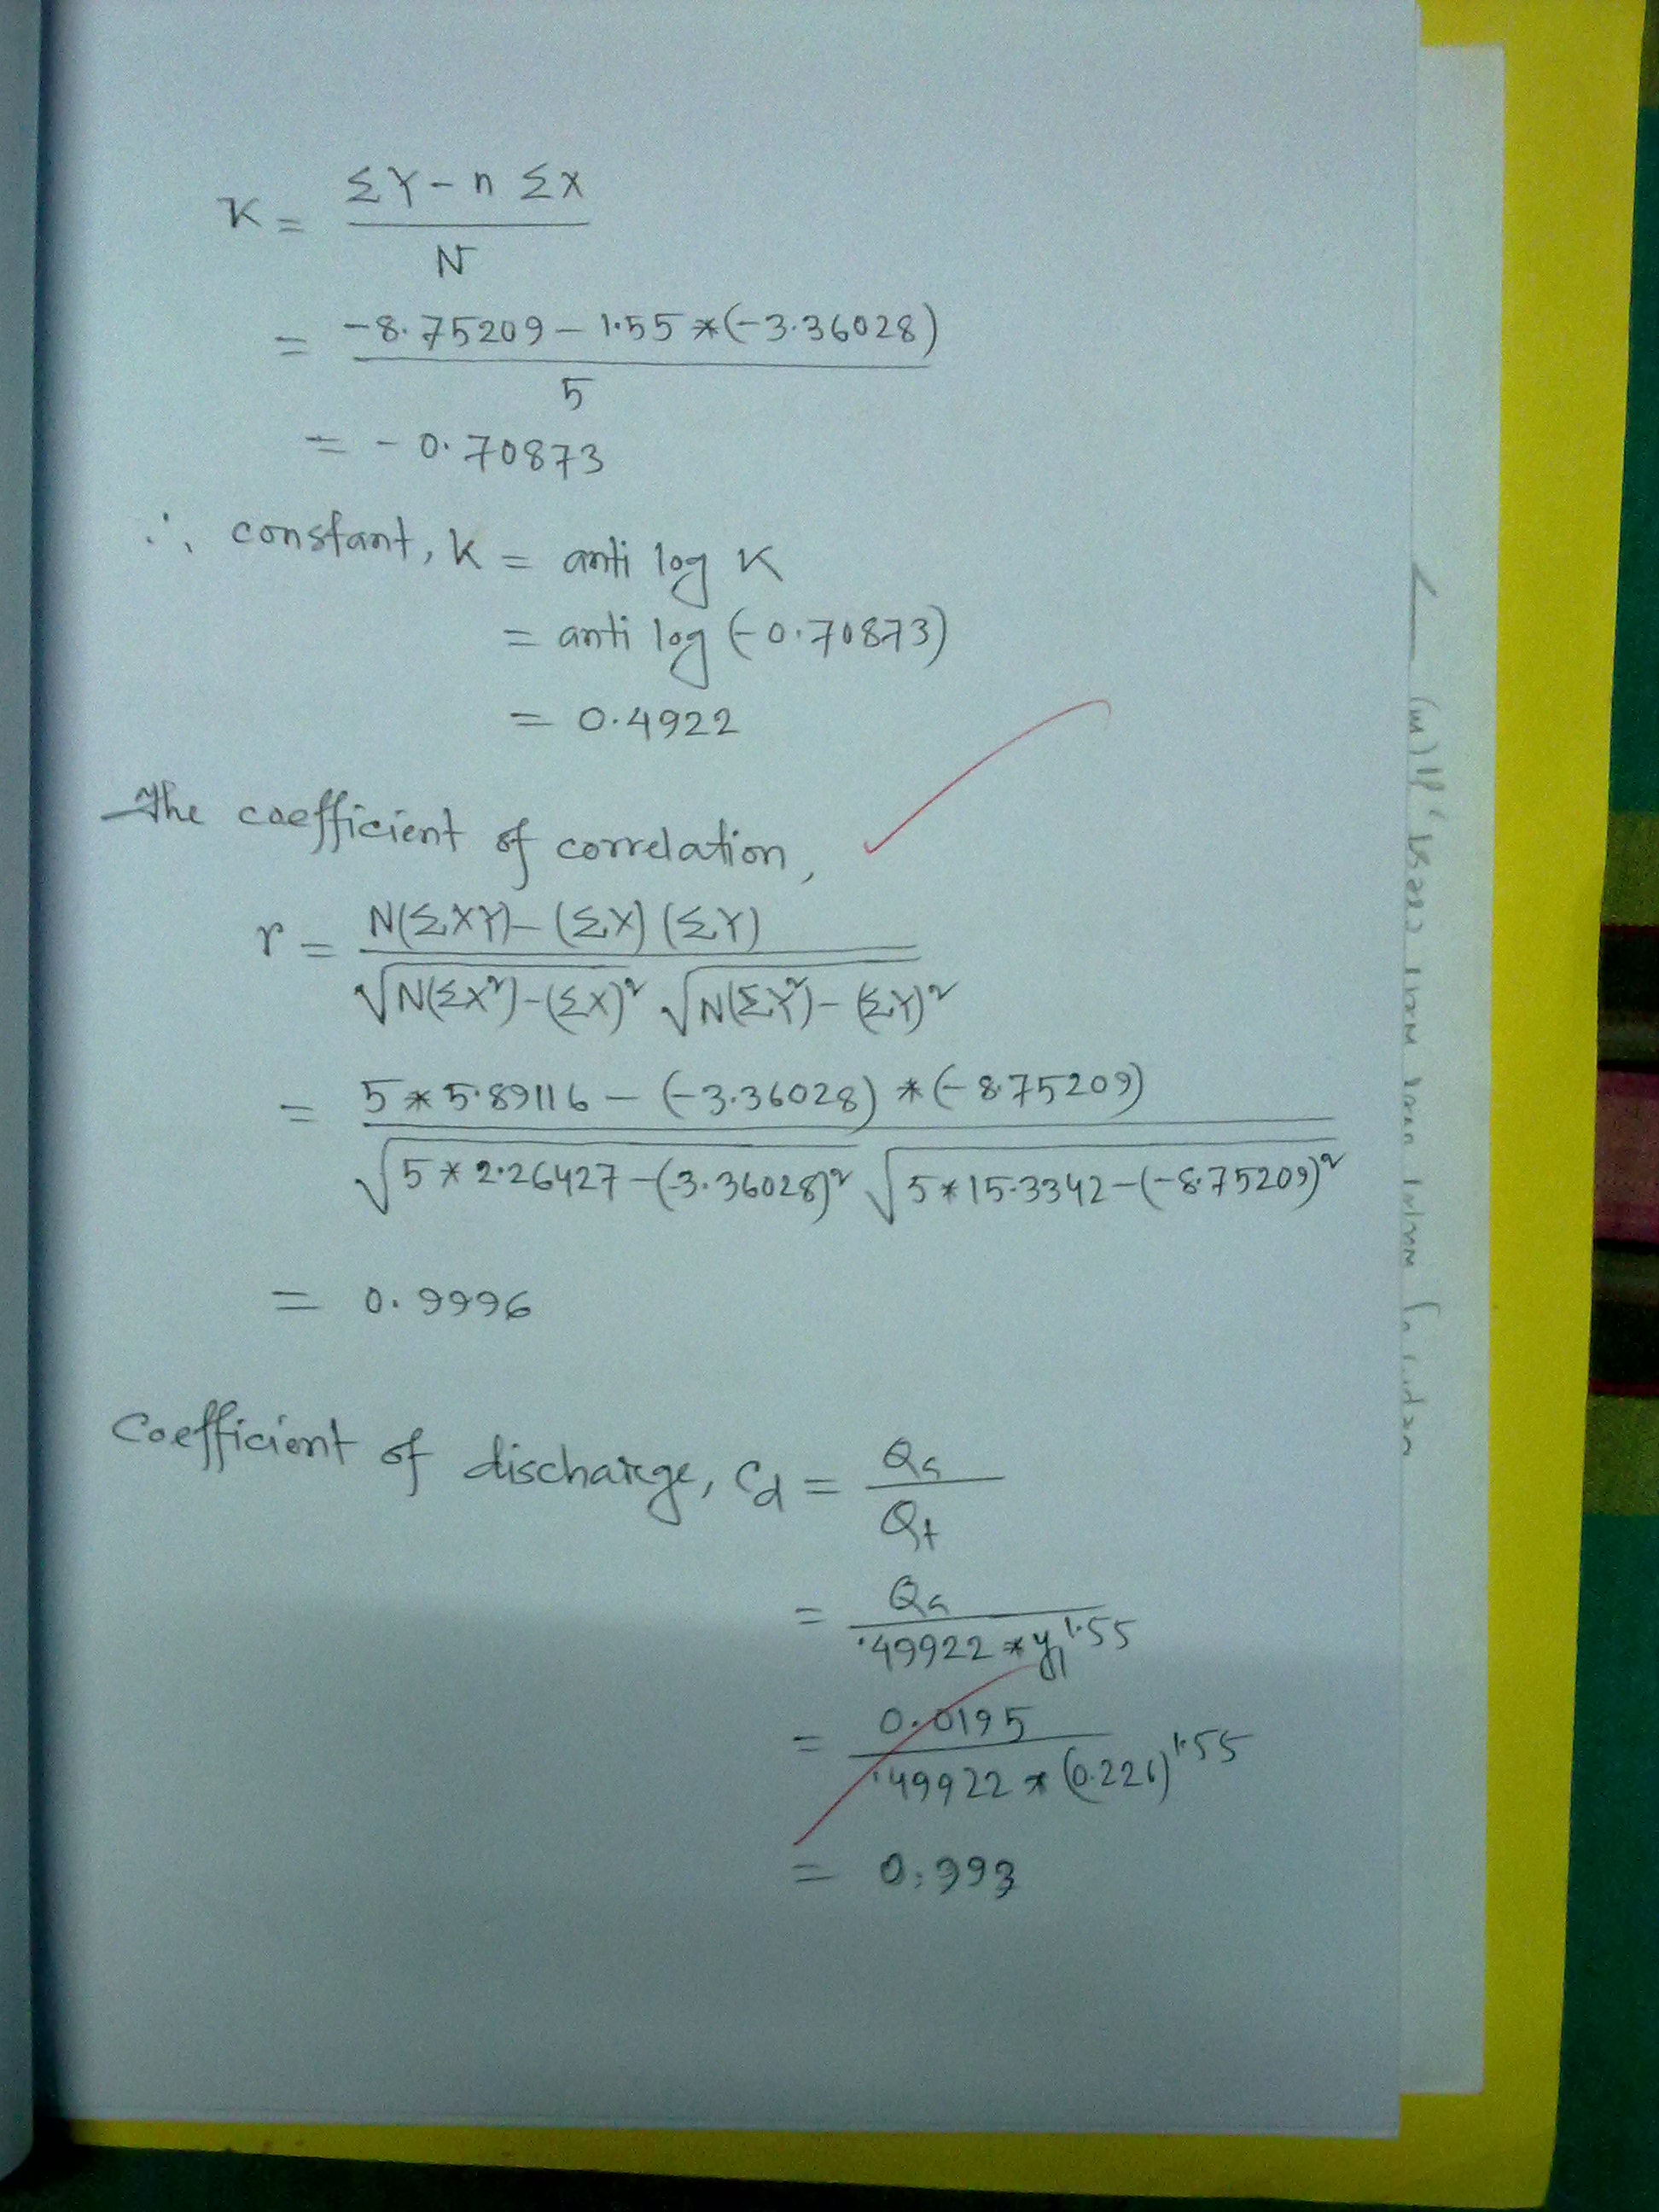 K = ΣY - n ΣX / N
= -8.75209 - 1.55 * (-3.36028) / 5
= -0.70873
∴ constant, K = anti log K
= anti log (-0.70873)
= 0.4922
The coefficient of correlation,
r = N(ΣXY) - (ΣX) (ΣY) / √N(ΣX²) - (ΣX)² √N(ΣY²) - (ΣY)²
= 5 * 5.89116 - (-3.36028) * (-8.75209) / √5 * 2.26427 - (-3.36028)² √5 * 15.3342 - (-8.75209)²
= 0.9996
Coefficient of discharge, Cd = Qa / Qt
= Qa / .49922 * y₁^1.55
= 0.0195 / .49922 * (0.221)^1.55
= 0.993